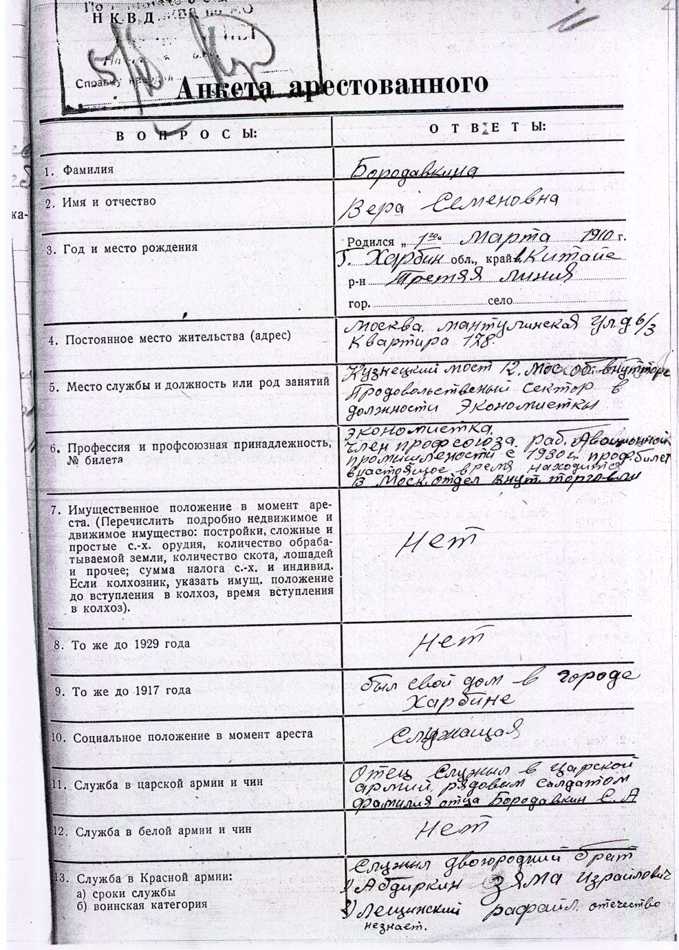 НКВД
Справку
Анкета арестованного
ВОПРОСЫ:
ОТВЕТЫ:
1. Фамилия
Бородавкина
2. Имя и отчество
Вера Семеновна
3. Год и место рождения
Родился „ 1го Марта 1910 г.
Г. Харбин обл., край в Китайе
р-н Третяя линия
гор. село
4. Постоянное место жительства (адрес)
Москва. Мантулинская ул д 6/3
Квартира 178
5. Место службы и должность или род занятий
Кузнецкий мост 12. Мос. об. внутторг
Продовольственый Сектор в
должности Экономистки
6. Профессия и профсоюзная принадлежность,
№ билета
Экономистка.
Член профсоюза. раб. Авационной
промышлености с 1930г. профбилет
внастоящое время находится
в Моск. отдел внут. торговли
7. Имущественное положение в момент аре-
ста. (Перечислить подробно недвижимое и
движимое имущество: постройки, сложные и
простые с.-х. орудия, количество обраба-
тываемой земли, количество скота, лошадей
и прочее; сумма налога с.-х. и индивид.
Если колхозник, указать имущ. положение
до вступления в колхоз, время вступления
в колхоз).
Нет
8. То же до 1929 года
Нет
9. То же до 1917 года
был свой дом в городе
Харбине
10. Социальное положение в момент ареста
Служащая
11. Служба в царской армии и чин
Отец Служыл в царской
армий, рядовым солдатом
фамилия отца Бородавкин С. А
12. Служба в белой армии и чин
Нет
13. Служба в Красной армии:
а) сроки службы
б) воинская категория
Служыл двогородний брат
1) Абдиркин Зяма Израилович
2) Лещинский Рафаил. отечество
незнает.